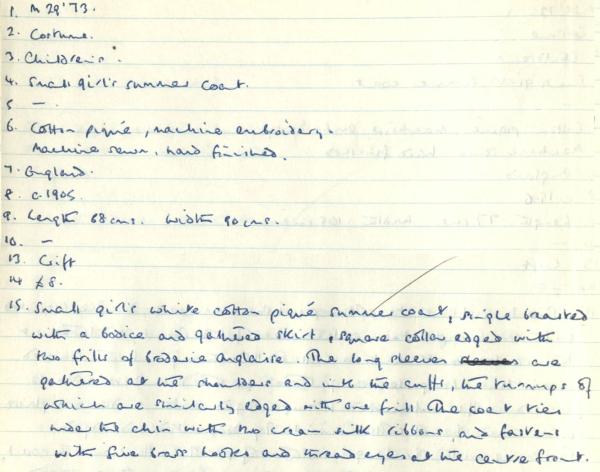 1. M 29'73.
2. Costume.
3. Children's.
4. Small girl's summer coat.
5 —.
6. Cotton piqué, machine embroidery.
Machine sewn, hand finished.
7. England.
8. c.1905.
9. Length 68 cms. Width 90 cms.
10. —
13. Gift
14 £8.
15. Small girl's white cotton piqué summer coat, single breasted
with a bodice and gathered skirt, square collar edged with
two frills of broderie anglaise. The long sleeves are
gathered at the shoulders and into the cuffs, the turnups of
which are similarly edged with one frill. The coat ties
under the chin with two cream silk ribbons, and fastens
with five brass hooks and thread eyes at the centre front.